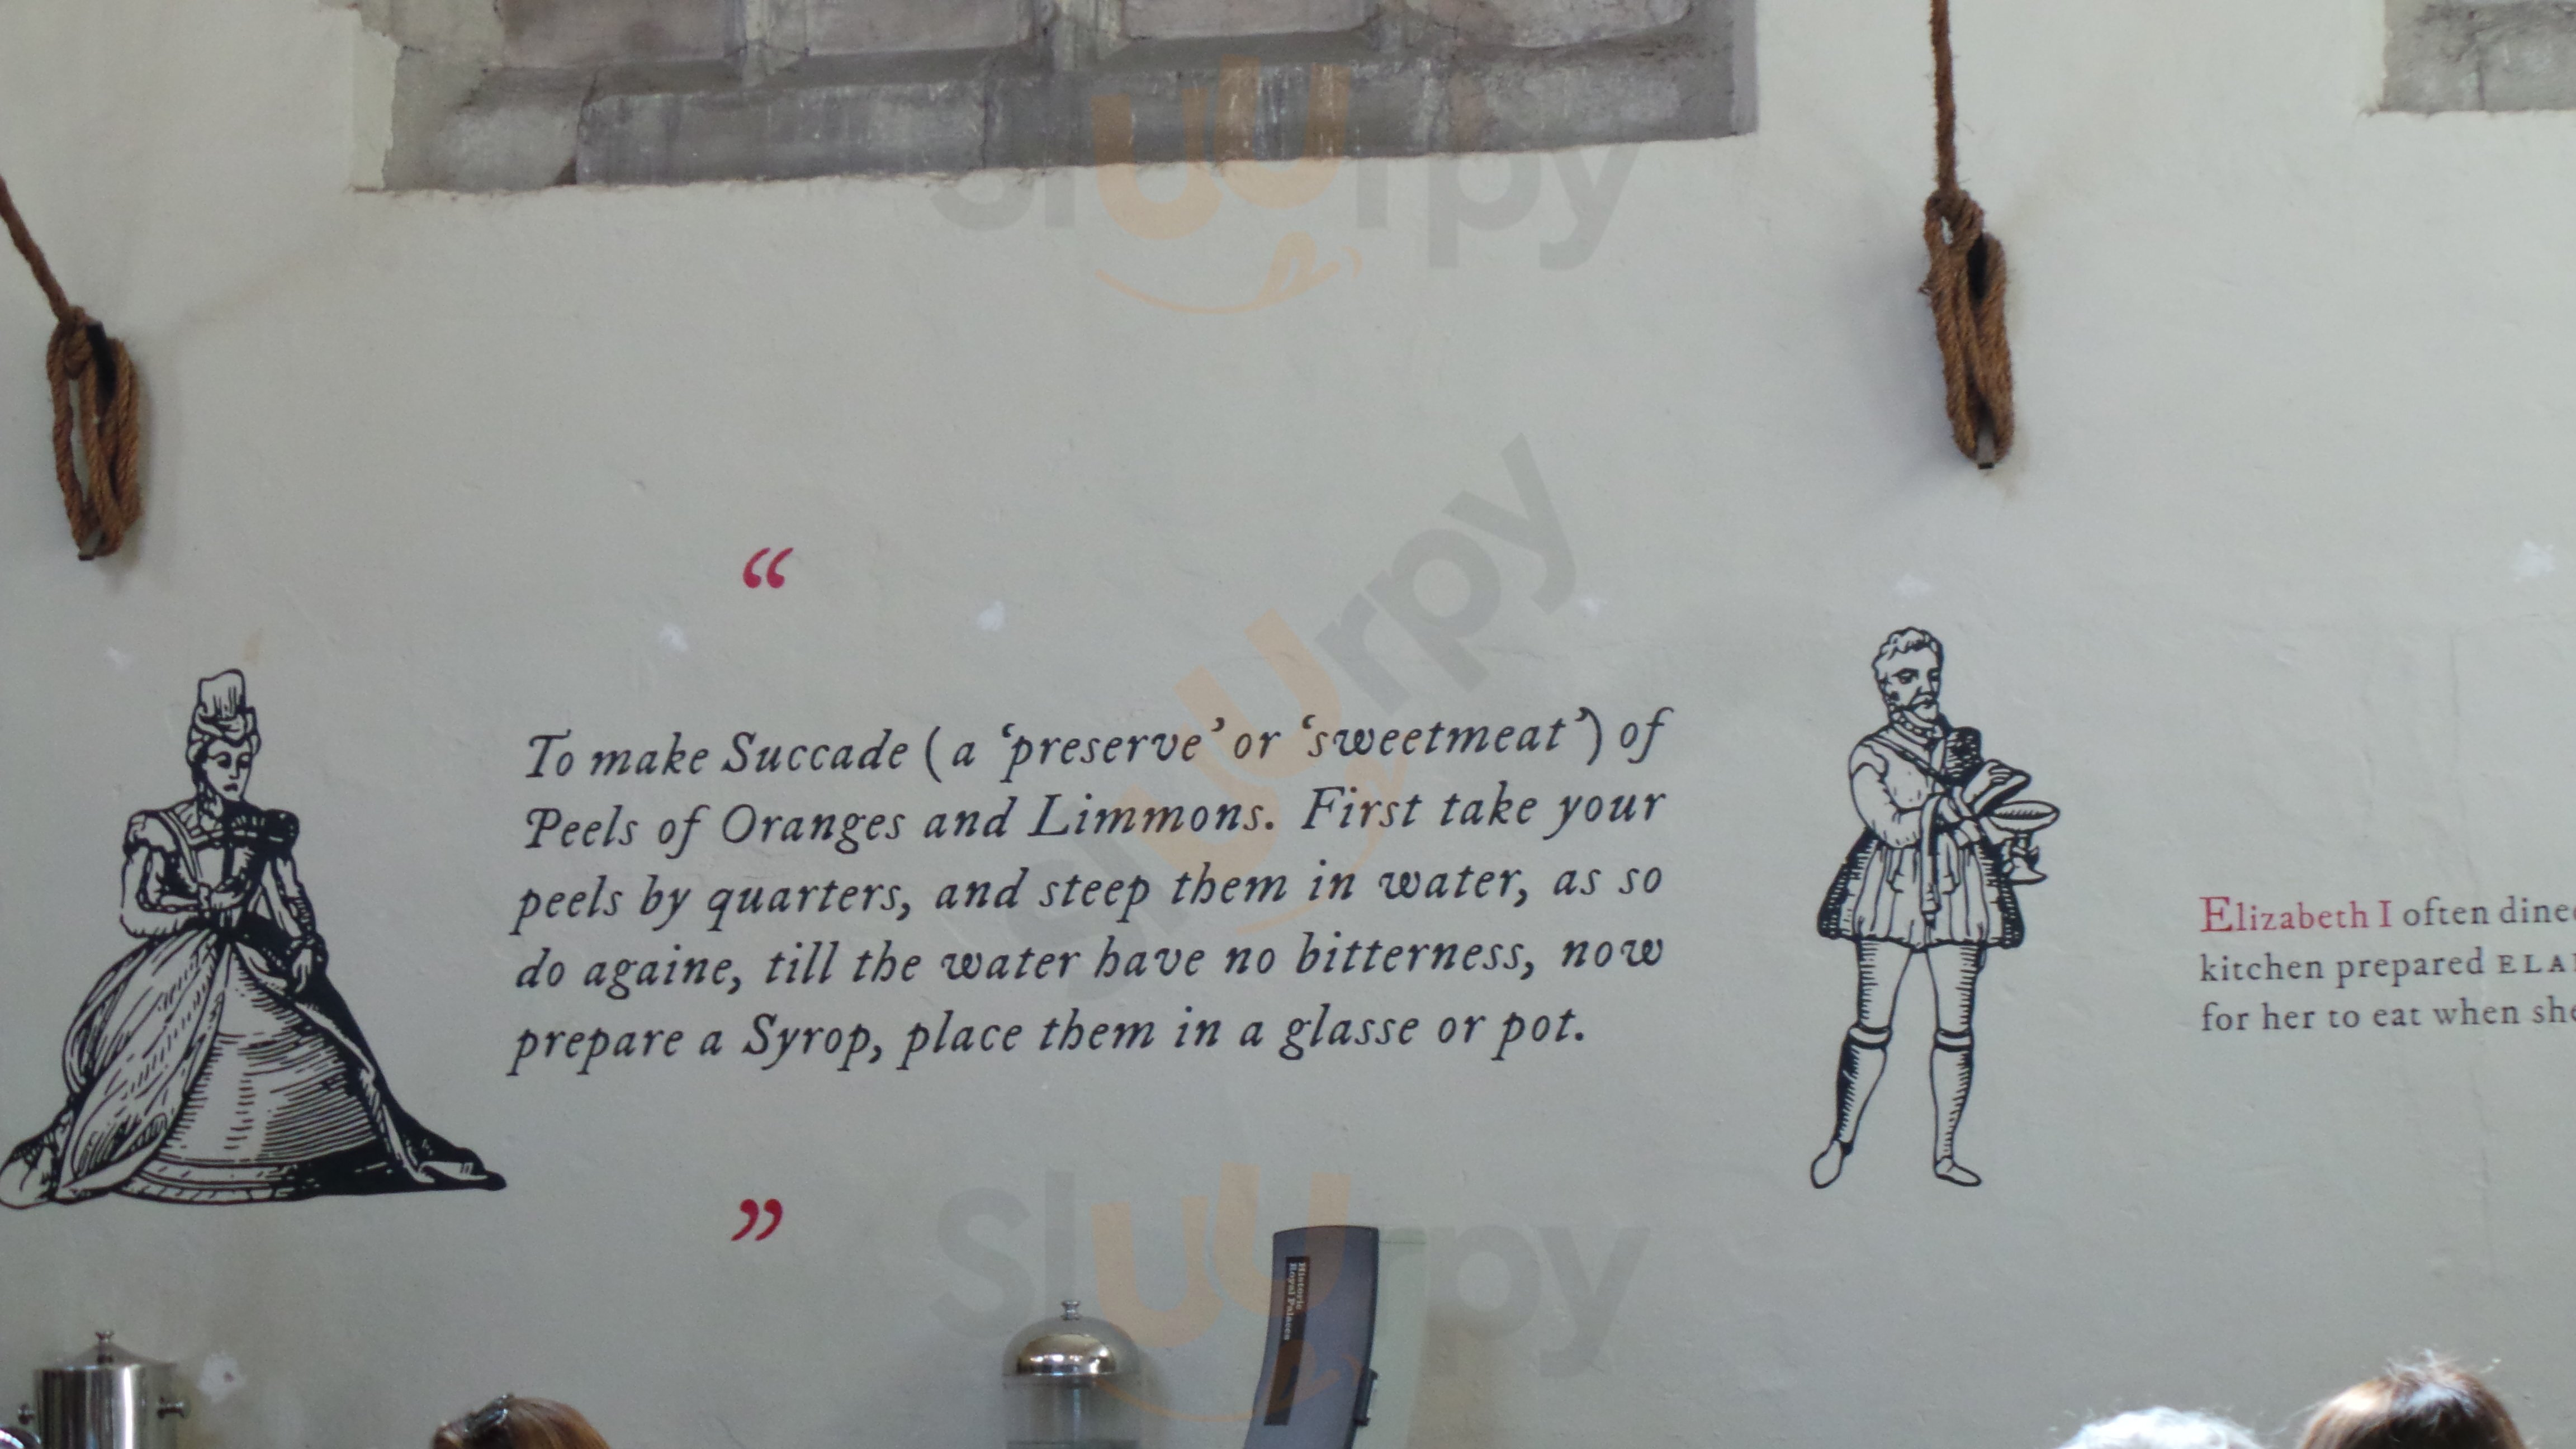 “
To make Succade (a ‘preserve’ or ‘sweetmeat’) of
Peels of Oranges and Limmons. First take your
peels by quarters, and steep them in water, as so
do againe, till the water have no bitterness, now
prepare a Syrop, place them in a glasse or pot.
”
Elizabeth I often
kitchen prepared
for her to eat when
Historic
Royal Palaces
sluurpy
sluurpy
sluurpy